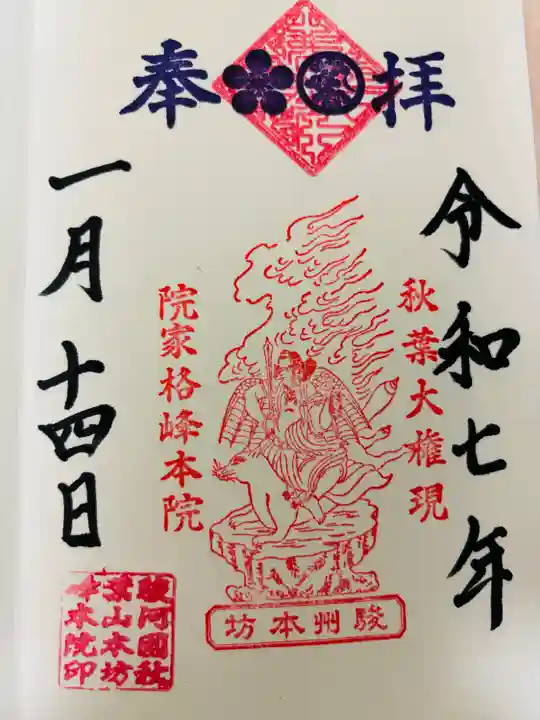 奉拝
令和七年
秋葉大権現
院家格峰本院
駿州本坊
一月十四日
駿河國秋
葉山本坊
峰本院印